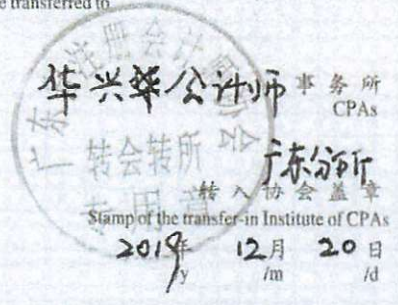 be transferred to
华兴华会计师事务所
CPAs
广东分所
转入协会盖章
Stamp of the transfer-in Institute of CPAs
2019年 12月 20日
y /m /d
广东省注册会计师协会
转会转所
专用章